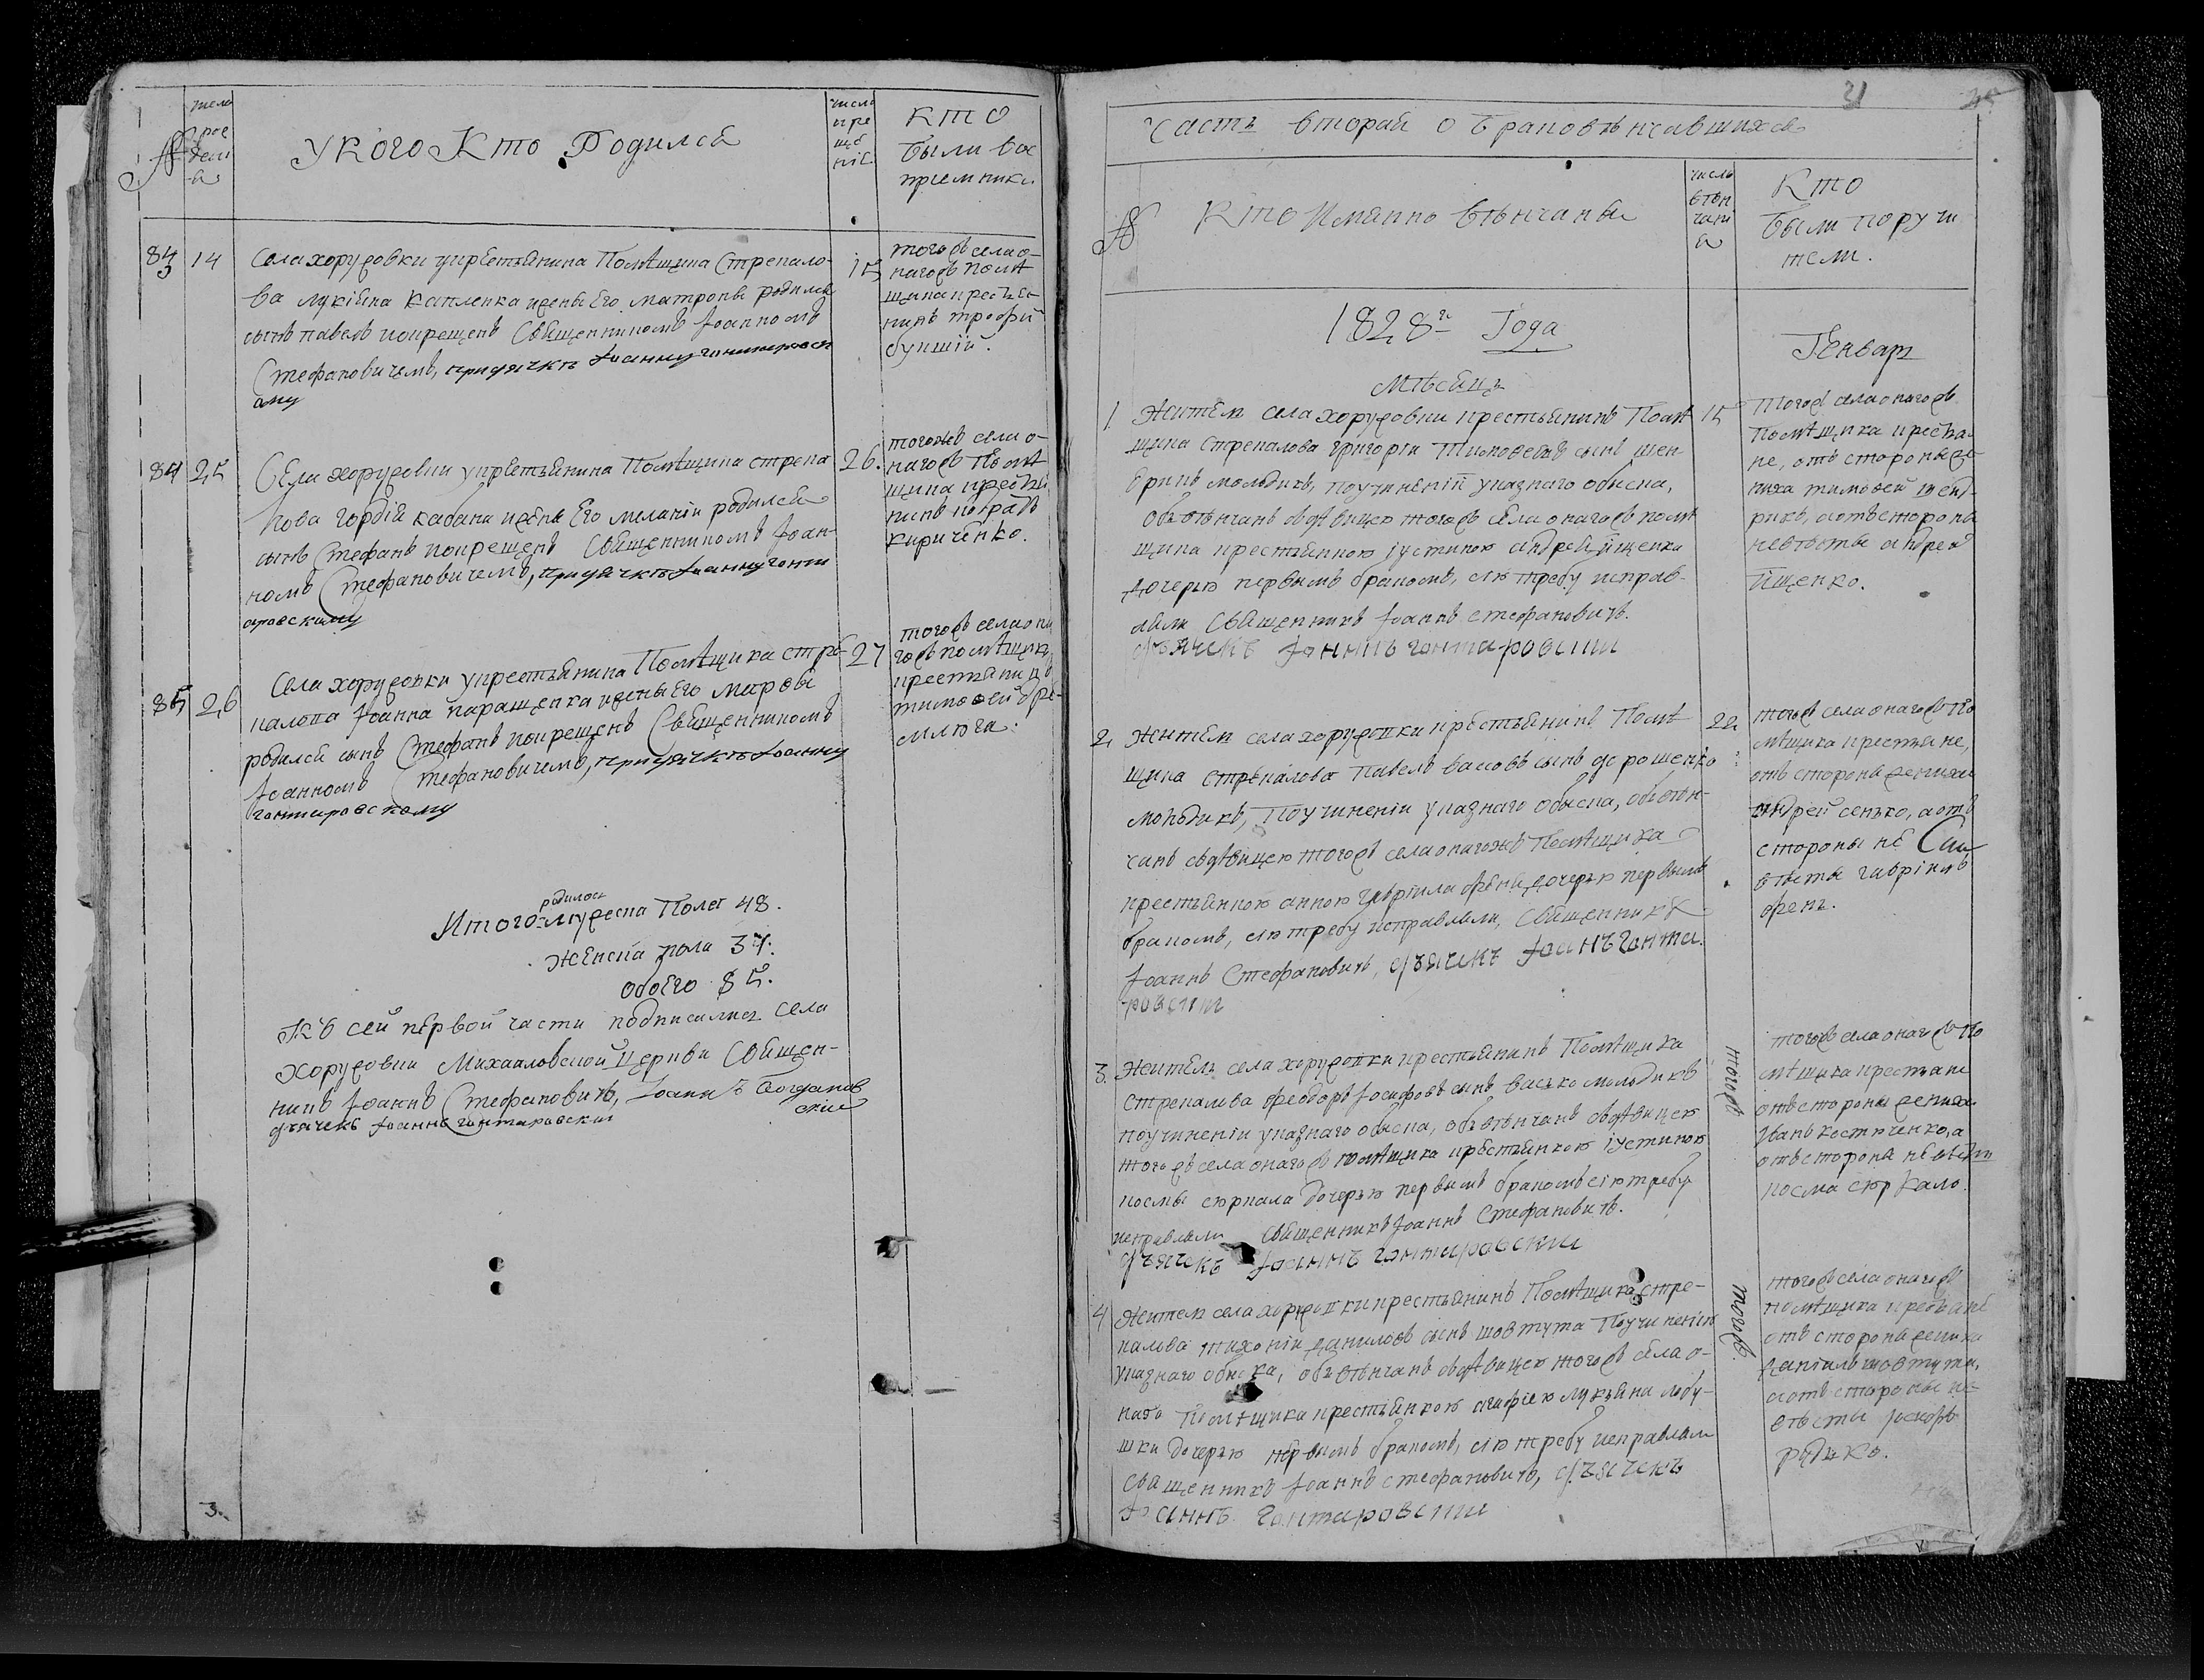 №
число рождения
У кого Кто Родился
число крещения
Кто были восприемники
83
14
Села хоружовки укрестьянина Помѣщика Стрекало-
ва лукіяна капленка жены Его матроны родился
сынъ павелъ и окрещенъ Священникомъ Іоанномъ
Стефановичемъ, при дячкѣ Іоанну гонтаровск
ому
15
тогожъ села о-
нагожъ помѣ
щика крестья
нинъ трофи
84
25
Села хоружовки укрестьянина Помѣщика стрека
лова гордія кабана жены Его меланіи родился
сынъ Стефанъ и окрещенъ Священникомъ Іоан-
номъ Стефановичемъ, при дячкѣ Іоанну гонт
аровскому
26.
тогожъ села о-
нагожъ Помѣ
щика крестья
нинъ
кириченко.
85
26
Села хоружовки укрестьянина Помѣщика стре
калова Іоанна паращенка жены Его марѳы
родился сынъ Стефанъ и окрещенъ Священникомъ
Іоанномъ Стефановичемъ, при дячкѣ Іоанну
гонтаровскому
27
тогожъ села она
гожъ помѣщика
крестьянинъ
тимоѳей бре-
млюга.
родилось
Итого мужеска Пола 48.
женска пола 37.
обоего 85.
Къ сей первой части подписались села
хоружовки Михаиловской Церкви Священ-
никъ Іоаннъ Стефановичъ, Іоаннъ Богданов
скій
дьячекъ Іоаннъ Гонтаровскии
3.
31
Часть вторая о браковѣнчавшихся
№
Кто Имянно вѣнчаны
число вѣнчания
Кто
были поручи
тели.
1828го Года
Мѣсяцъ
Генварь
1
Житель села хоружовки крестьянинъ Помѣ
щика стрекалова григорій Тимоѳеевъ сынъ шен
дрикъ молодикъ, поучиненіи указнаго обыска,
обвѣнчанъ здѣвицею тогожъ села онагожъ помѣ
щика крестьянкою іустиною андрея іщенка
дочерью первымъ бракомъ, сію требу исправ-
ляли Священникъ Іоаннъ стефановичъ.
дъячекъ Іоаннъ гонтаровскии
15
Тогожъ села онагожъ
Помѣщика крестья
не, отъ стороны же
ниха тимоѳей шенд-
рикъ, а отъ стороны
невѣсты андрей
іщенко.
2
Житель села хоружовки крестьянинъ Помѣ
щика стрекалова Павелъ савовъ сынъ дорошенко
молодикъ, Поучиненіи указнаго обыска, обвѣн-
чанъ здѣвицею тогожъ села онагожъ Помѣщика
крестьянкою анною гавріила орена дочерью первымъ
бракомъ, сію требу исправляли, Священникъ
Іоаннъ Стефановичъ, дъячекъ Іоаннъ Гонта
ровскии
22
тогожъ села онагожъ По
мѣщика крестьяне,
отъ стороны жениха
андрей сенько, а отъ
стороны не
вѣсты гавріилъ
орень.
3.
Житель села хоружовки крестьянинъ Помѣщика
стрекалова Ѳеодоръ Іосифовъ сынъ васько молодикъ
поучиненіи указнаго обыска, обвѣнчанъ здѣвицею
тогожъ села онагожъ помѣщика крестьянкою іустиною
космы сюркала дочерью первымъ бракомъ сію требу
исправляли Священникъ Іоаннъ Стефановичъ.
дъячекъ Іоаннъ гонтаровскии
тогожъ
тогожъ села онагожъ По
мѣщика крестьяне
отъ стороны жениха
Иванъ костюченко, а
отъ стороны невѣсты
косма сюркало.
4
Житель села хоружовки крестьянинъ Помѣщика стре-
калова тихоній даниловъ сынъ шовтута Поучиненію
указнаго обыска, обвѣнчанъ здѣвицею тогожъ села о-
наго Помѣщика крестьянкою агафіею лукьяна лебу-
шки дочерью первымъ бракомъ, сію требу исправляли
священникъ Іоаннъ стефановичъ, дъячекъ
Іоаннъ гонтаровскии
тогожъ.
тогожъ села онагожъ
помѣщика крестьяне
отъ стороны жениха
даніилъ шовтута,
а отъ стороны не-
вѣсты Іосифъ
радько.